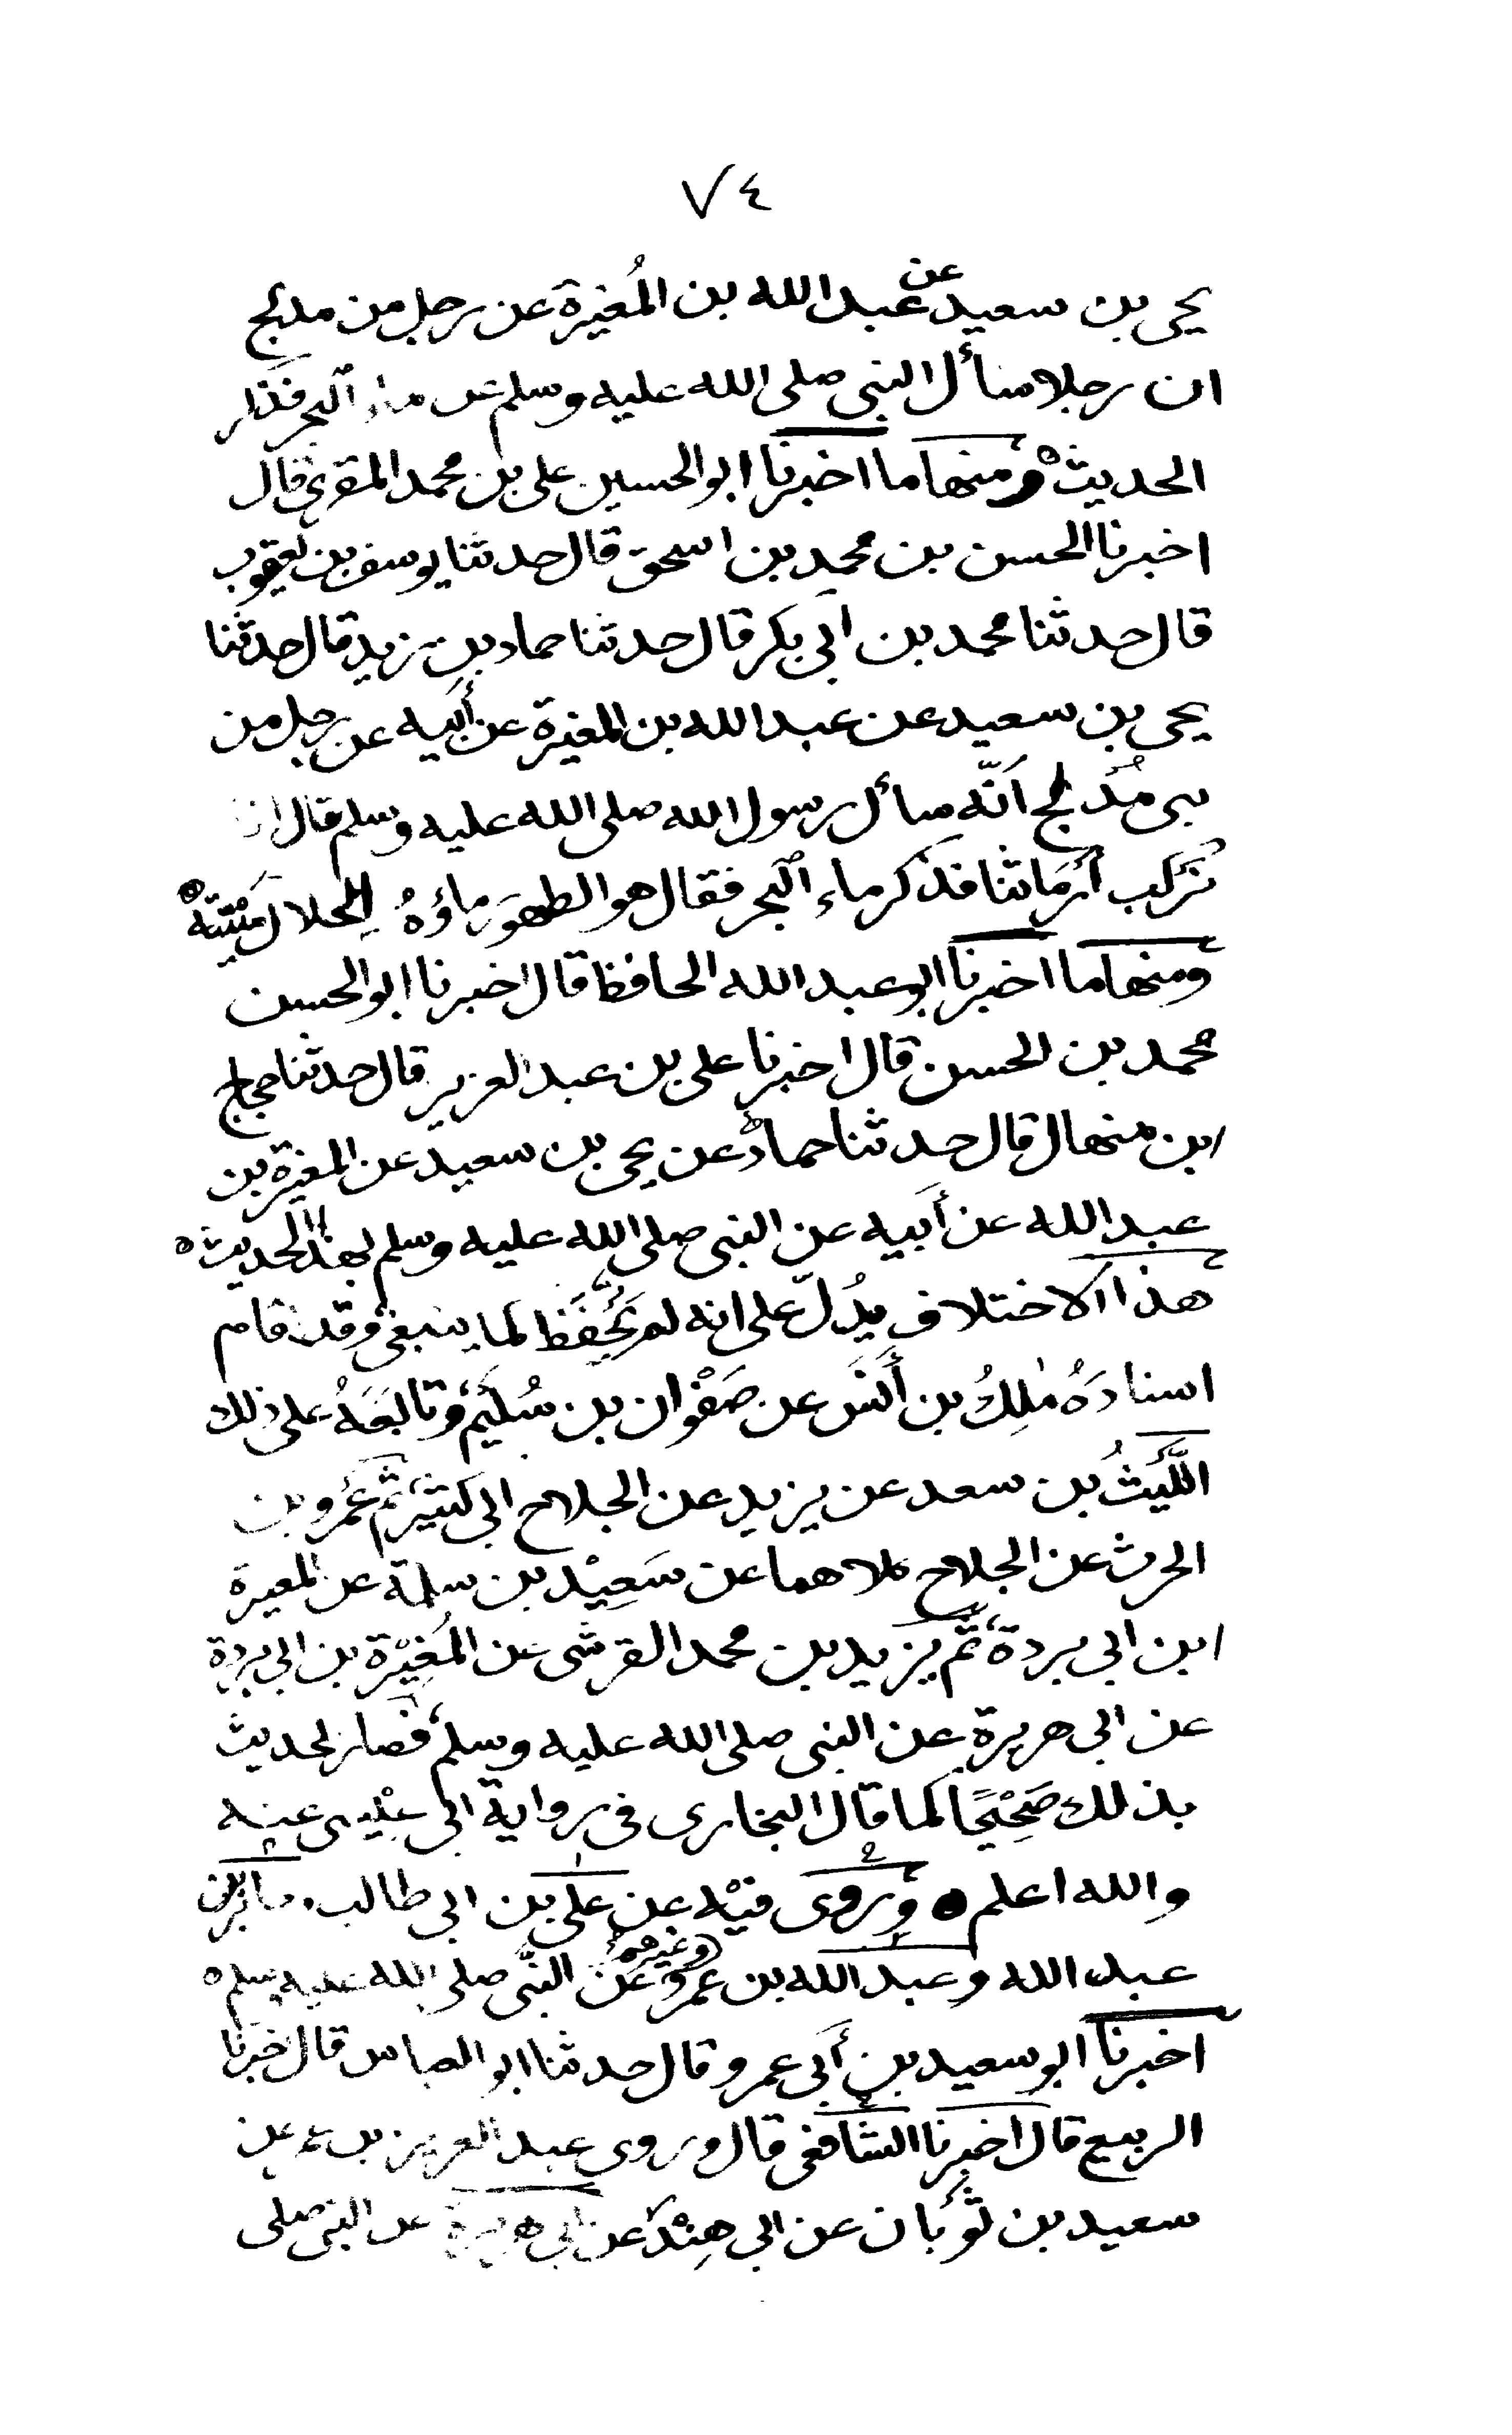 ٧٤
يحيى بن سعيد عن عبد الله بن المُغيرة عن رجل من مدلج
ان رجلا سأل النبى صلى الله عليه وسلم عن ماء البحر فذكر
الحديث ه ومنها ما اخبرنا ابو الحسين على بن محمد المقرئ قال
اخبرنا الحسن بن محمد بن اسحق قال حدثنا يوسف بن يعقوب
قال حدثنا محمد بن أبى بكر قال حدثنا حماد بن زيد قال حدثنا
يحيى بن سعيد عن عبد الله بن المغيرة عن أبيه عن رجل من
بنى مُدْلج أنّه سأل رسول الله صلى الله عليه وسلم قال انا
نَرْكب أرْمَاثنا فذكر ماء البحر فقال هو الطهور ماؤهُ الحلال مَيْتَته ه
ومنها ما اخبرنا ابو عبد الله الحافظ قال اخبرنا ابو الحسن
محمد بن الحسن قال اخبرنا على بن عبد العزيز قال حدثنا حجاج
ابن منهال قال حدثنا حمادٌ عن يحيى بن سعيد عن المغيرة بن
عبد الله عن أبيه عن النبى صلى الله عليه وسلم بهذا الحديث ه
هذا الاختلاف يدُلّ على انه لم يُحْفَظ كما ينبغى وقد اقام
اسنادَهُ مٰلِكُ بن أنَس عن صَفْوان بن سُلَيْم وتابَعَهُ على ذلك
اللَّيْثُ بن سعد عن يزيد عن الجلاح ابى كثير ثم عَمْرو بن
الحرث عن الجلاح كلاهما عن سَعِيْد بن سلمة عن المغيرة
ابن ابى بردة ثم يزيد بن محمد القرشى عن المُغِيْرة بن ابى بردة
عن ابى هريرة عن النبى صلى الله عليه وسلم فصار الحديث
بذلك صَحِيْحًا كما قال البخارى فى رواية ابى عِيْسى عنه
والله اعلم ه ورُوى فيْه عن على بن ابى طالب وجابر بن
عبد الله وعبد الله بن عمرو وغيرهم عن النبى صلى الله عليه وسلم ه
اخبرنا ابو سعيد بن أبى عمرو قال حدثنا ابو العباس قال اخبرنا
الربيع قال اخبرنا الشافعى قال وروى عبد العزيز بن عمر عن
سعيد بن ثَوْبَان عن ابى هِنْد عن ابى هريرة عن النبى صلى